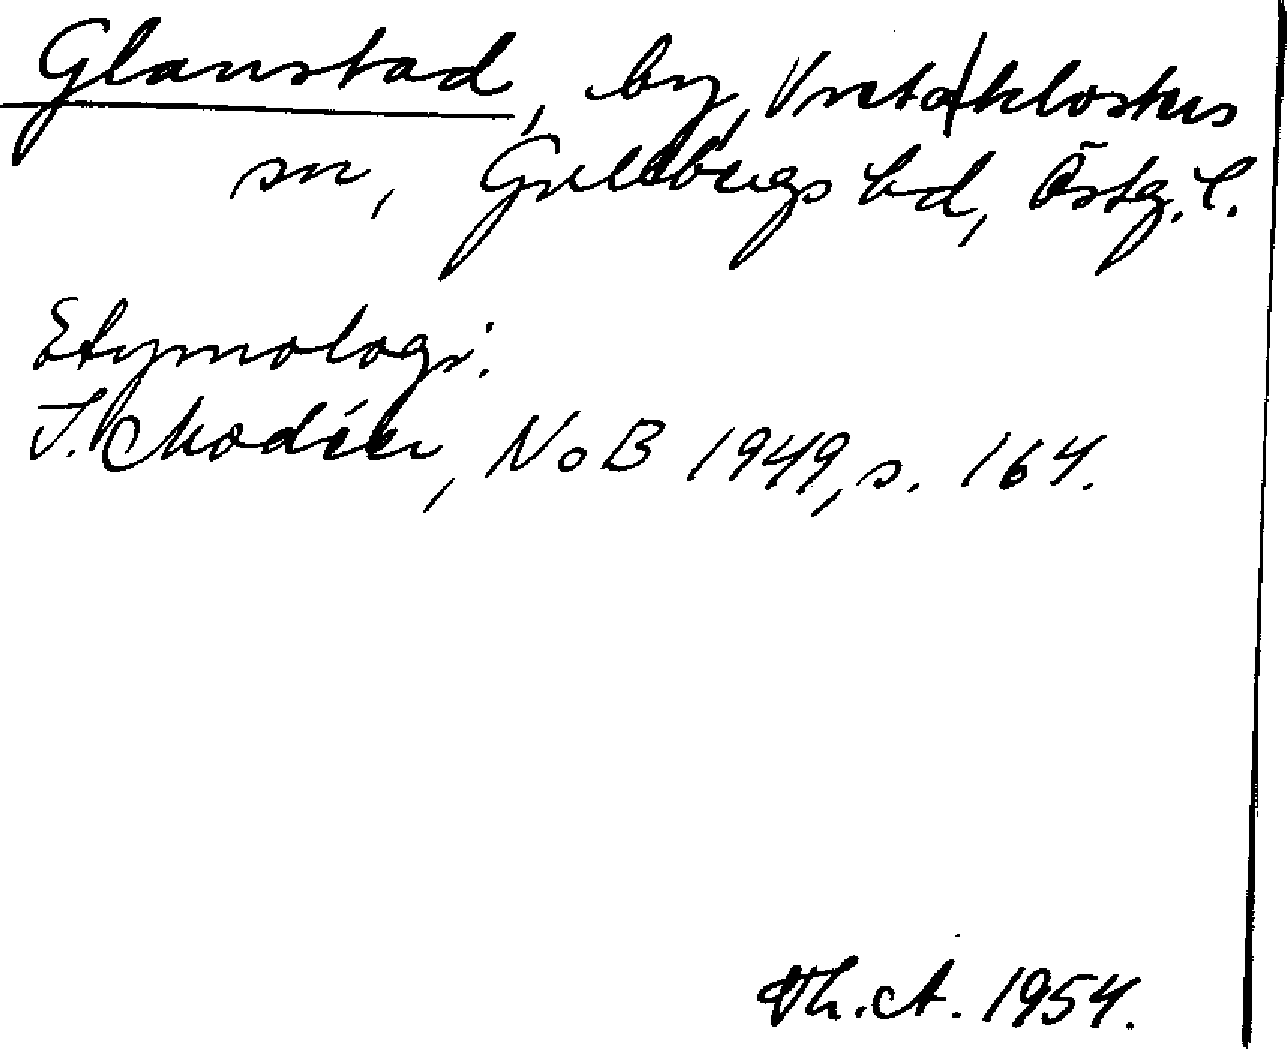 Glanstad, by, Vreta klosters
sn, Gullbergs hd, Östg. l.
Etymologi:
I. Modéer, NoB 1949, s. 164.
Th. A. 1954.